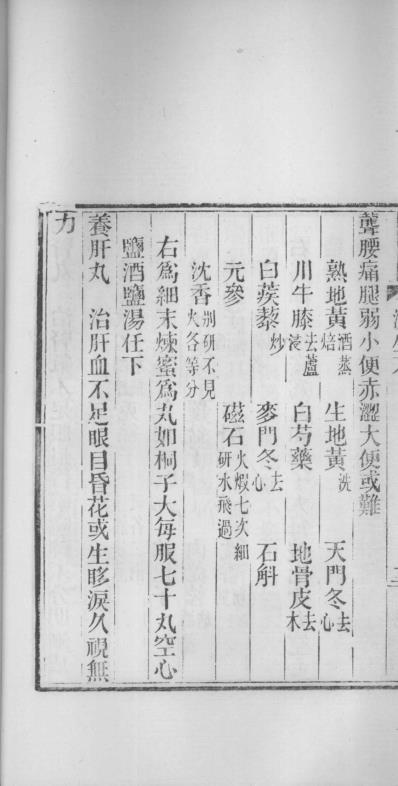 聾腰痛腿弱小便赤澀大便或難
熟地黃酒蒸焙 生地黃洗 天門冬去心
川牛膝去蘆浸 白芍藥 地骨皮去木
白蒺藜炒 麥門冬去心 石斛
元參 磁石火煆七次細研水飛過
沈香別研不見火各等分
右爲細末煉蜜爲丸如桐子大每服七十丸空心
鹽酒鹽湯任下
養肝丸 治肝血不足眼目昏花或生眵淚久視無
力